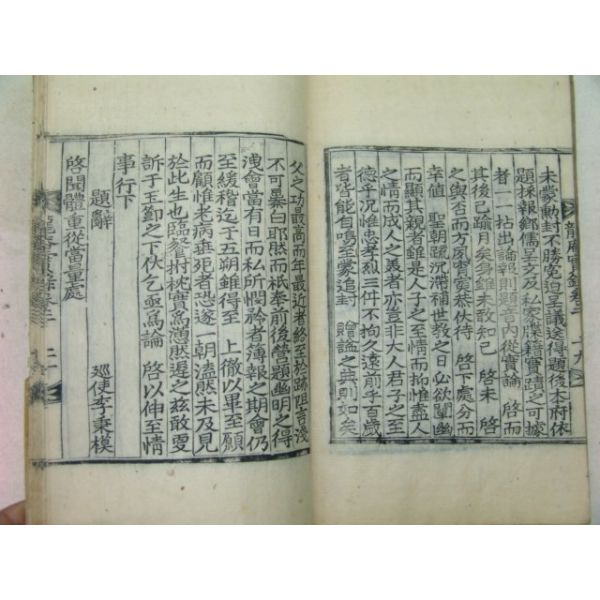 未蒙勳封不勝寃迫呈議送得題後本府依
題採報鄕儒呈文及私家牒籍實蹟之可據
者一一拈出論報則題音內從實論 啓而
其後已踰月矣身雖未敢知已 啓未 啓
之與否而方夙宵寃菀伏待 啓下處分而
幸値 聖朝疏沉滯補世敎之日必欲闡幽
而顯其親者雖是人子之至情而抑惟盡人
之情而成人之美者亦豈非大人君子之至
德乎況惟忠孝烈三件不拘久遠前乎百歲
者皆能自鳴至蒙追封 贈諡之典則如矣
龍 實錄卷二 十九
父之功最高而年最近者終至於跡阻言淺
不可暴白耶然而祗奉前後營題幽明之得
洩會當有日而私所憫鬱者薄報之期會仍
至緩稽迄于五朔雖得至 上徹以畢至願
而顧惟老病垂死者恐遂一朝溘然未及見
於此生也臨 拊枕實爲憑厥遲之玆敢更
訴于玉節之下伏乞亟爲論 啓以伸至情
事行下
題辭
啓聞體重從當量處
巡使李秉模